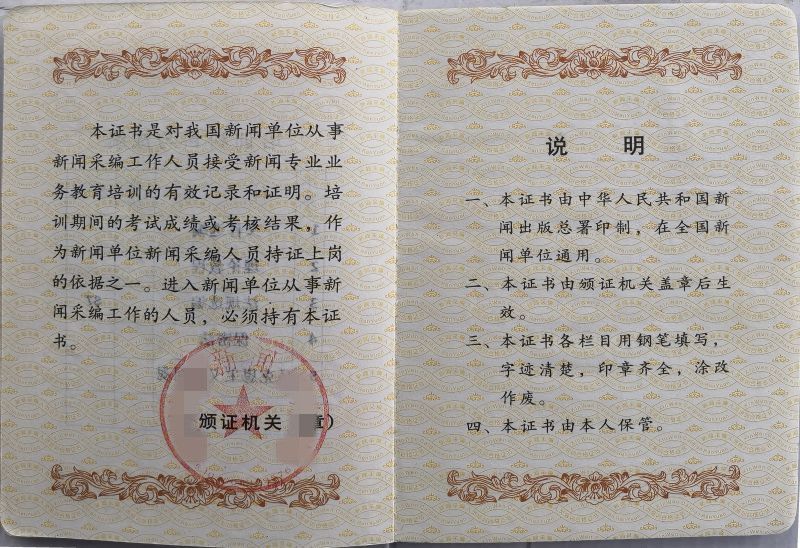 本证书是对我国新闻单位从事
新闻采编工作人员接受新闻专业业
务教育培训的有效记录和证明。培
训期间的考试成绩或考核结果，作
为新闻单位新闻采编人员持证上岗
的依据之一。进入新闻单位从事新
闻采编工作的人员，必须持有本证
书。
新闻
颁证机关
章）
说 明
一、本证书由中华人民共和国新
闻出版总署印制，在全国新
闻单位通用。
二、本证书由颁证机关盖章后生
效。
三、本证书各栏目用钢笔填写，
字迹清楚，印章齐全，涂改
作废。
四、本证书由本人保管。